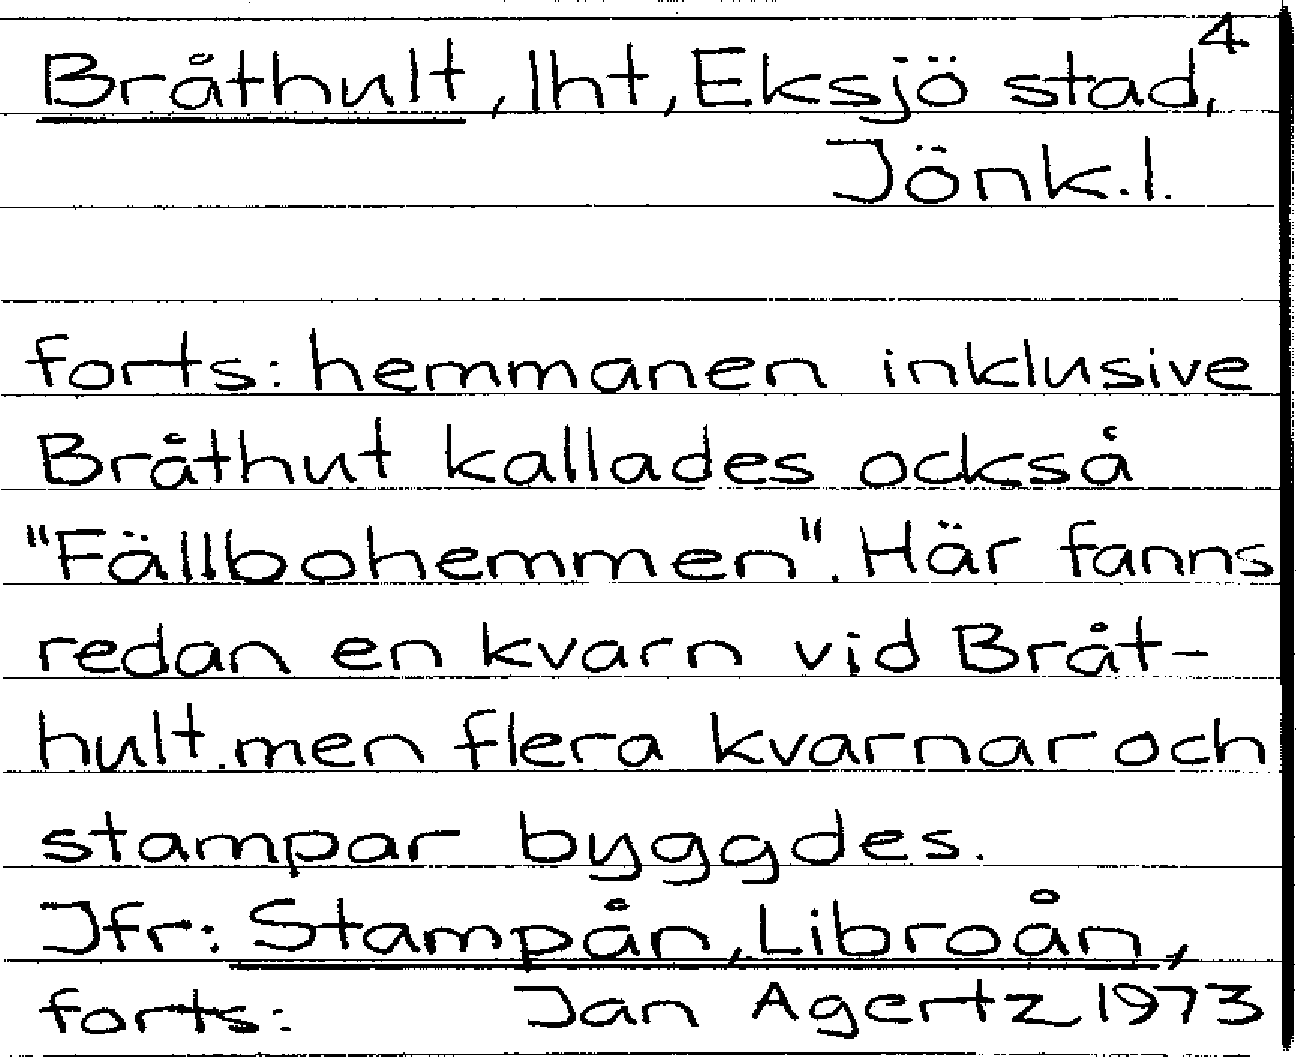 4
Bråthult, lht, Eksjö stad,
Jönk.l.
forts: hemmanen inklusive
Bråthut kallades också
"Fällbohemmen". Här fanns
redan en kvarn vid Bråt-
hult.men flera kvarnar och
stampar byggdes.
Jfr: Stampån, Libroån,
forts: Jan Agertz 1973